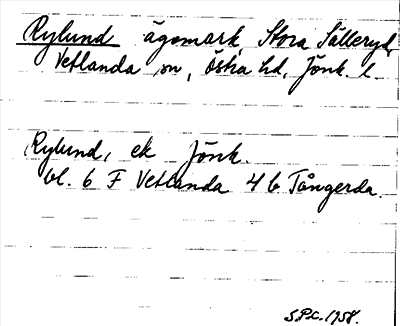 Rylund ägomark, Stora Sälleryd,
Vetlanda sn, Östra hd, Jönk. l
Rylund, ek Jönk.
bl. 6 F Vetlanda 4 b Tångerda.
S.P.C. 1958.